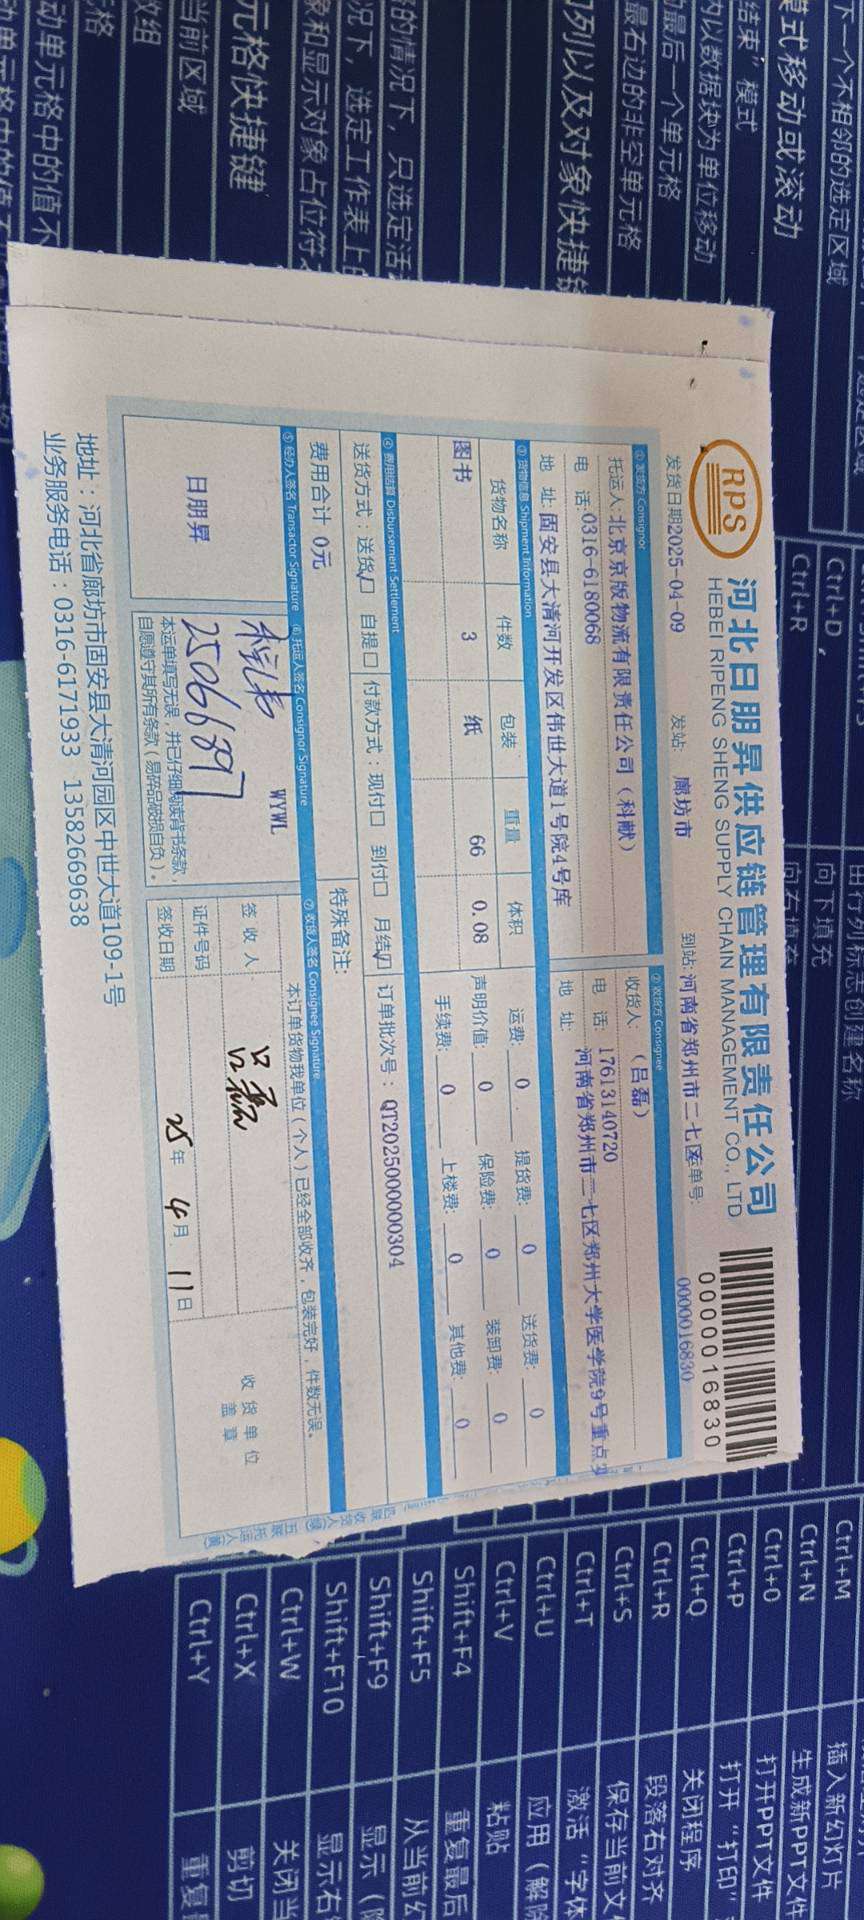 RPS
河北日朋昇供应链管理有限责任公司
HEBEI RIPENG SHENG SUPPLY CHAIN MANAGEMENT CO., LTD
0000016830
发货日期2025-04-09 发站: 廊坊市 到站:河南省郑州市二七区运单号: 0000016830
① 发货方 Consignor ② 收货方 Consignee
托运人:北京京版物流有限责任公司（科献） 收货人: （吕磊）
电 话:0316-6180068 电 话: 17613140720
地 址 固安县大清河开发区伟世大道1号院4号库 地 址: 河南省郑州市二七区郑州大学医学院9号重点
③ 货物信息 Shipment Information
货物名称 件数 包装 重量 体积 运费: 0 提货费: 0 送货费: 0
图书 3 纸 66 0.08 声明价值: 0 保险费: 0 装卸费: 0
手续费: 0 上楼费: 0 其他费: 0
④ 费用结算 Disbursement Settlement
送货方式: 送货☑ 自提□ 付款方式: 现付□ 到付□ 月结☑ 订单批次号: QT2025000000304
费用合计 0元 特殊备注:
⑤ 经办人签名 Transactor Signature ⑥ 托运人签名 Consignor Signature ⑦ 收货人签名 Consignee Signature
日朋昇
WYWL
2506689
本运单填写无误，并已仔细阅读背书条款，
自愿遵守其所有条款（易碎品破损自负）。
本订单货物我单位（个人）已经全部收齐，包装完好，件数无误。
签收人 吕磊
证件号码
签收日期 25年 4月 11日
收货单位
盖章
地址：河北省廊坊市固安县大清河园区中世大道109-1号
业务服务电话：0316-6171933 13582669638
下一个不相邻的选定区域
模式移动或滚动
结束”模式
内以数据块为单位移动
最后一个单元格
最右边的非空单元格
列以及对象快捷键
的情况下，只选定活
况下，选定工作表上的
象和显示对象占位符
元格快捷键
当前区域
数组
动单元格中的值不
Ctrl+D 向下填充
Ctrl+R 向右填充
由行列标志创建名称
Ctrl+M 插入新幻灯片
Ctrl+N 生成新PPT文件
Ctrl+O 打开PPT文件
Ctrl+P 打开“打印”
Ctrl+Q 关闭程序
Ctrl+R 段落右对齐
Ctrl+S 保存当前文
Ctrl+T 激活“字体
Ctrl+U 应用（解除
Ctrl+V 粘贴
Shift+F4 重复最后
Shift+F5 从当前幻
Shift+F9 显示（隐
Shift+F10 显示右
Ctrl+W 关闭当
Ctrl+X 剪切
Ctrl+Y 重复